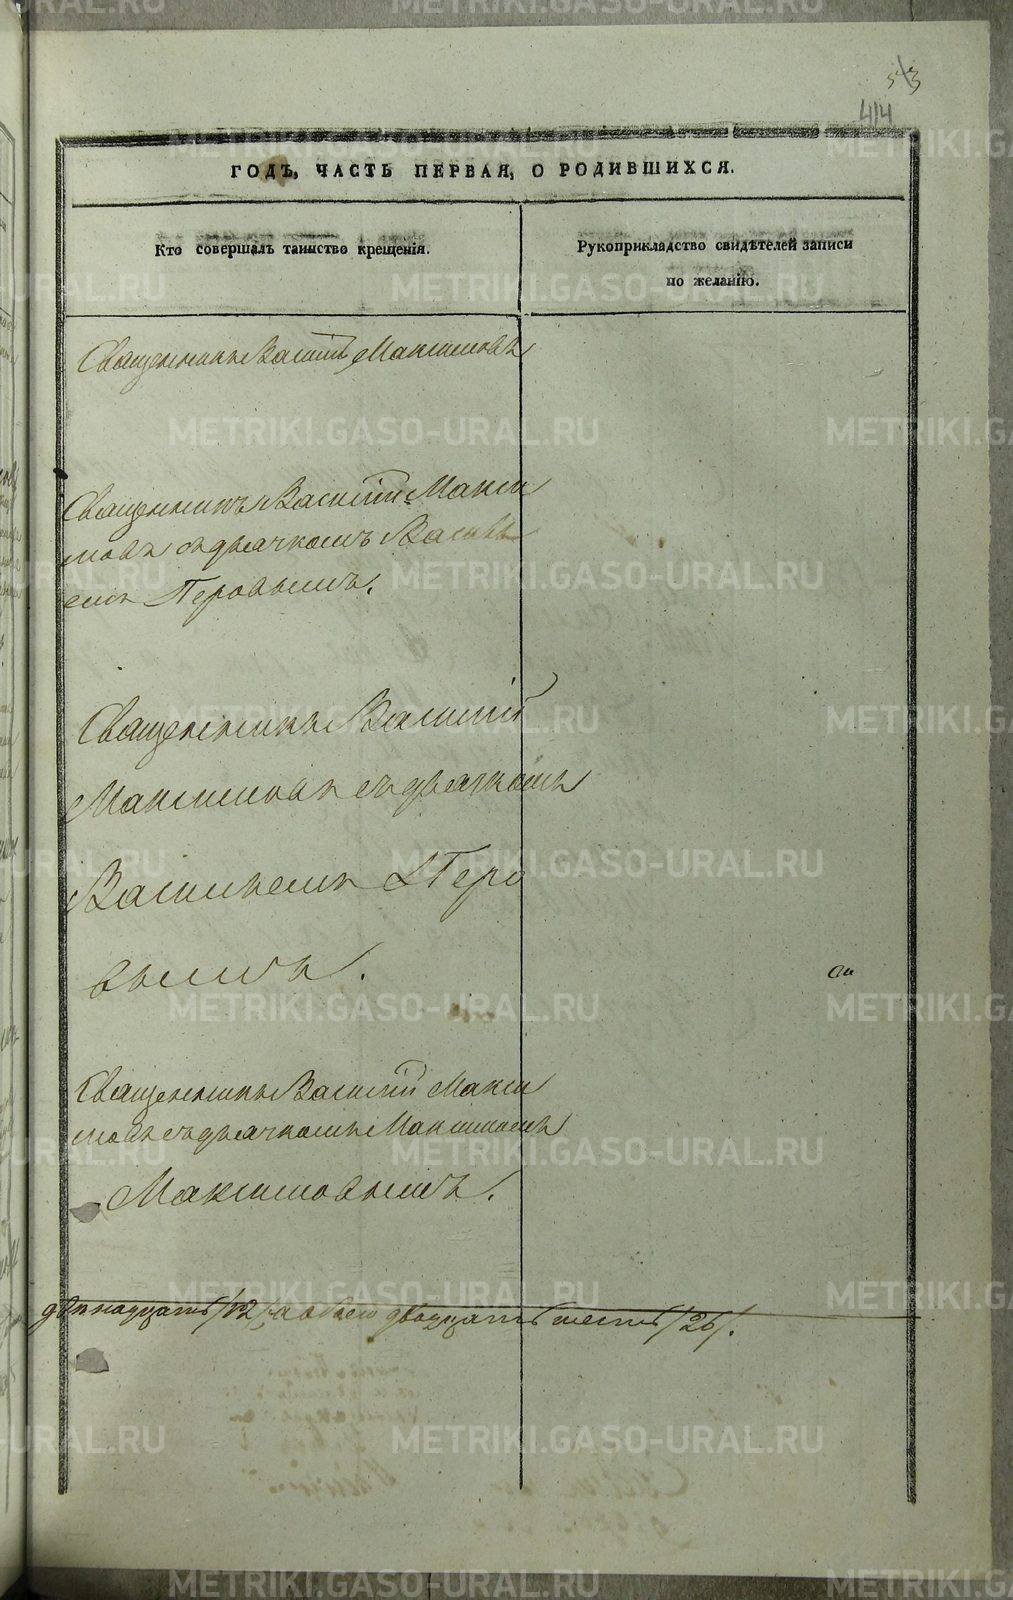 53
414
ГОДЪ, ЧАСТЬ ПЕРВАЯ, О РОДИВШИХСЯ.
Кто совершалъ таинство крещенія.
Рукоприкладство свидѣтелей записи
по желанію.
Священникъ Василій Максимовъ
Священникъ Василій Макси
мовъ съ дьячкомъ Василь
емъ Перовымъ.
Священникъ Василій
Максимовъ съ дьячкомъ
Васильемъ Перо
вымъ.
Священникъ Василій Макси
мовъ съ дьячкомъ Максимомъ
Максимовымъ.
двѣнадцать /12/, а обоего двадцать шесть /26/.
METRIKI.GASO-URAL.RU